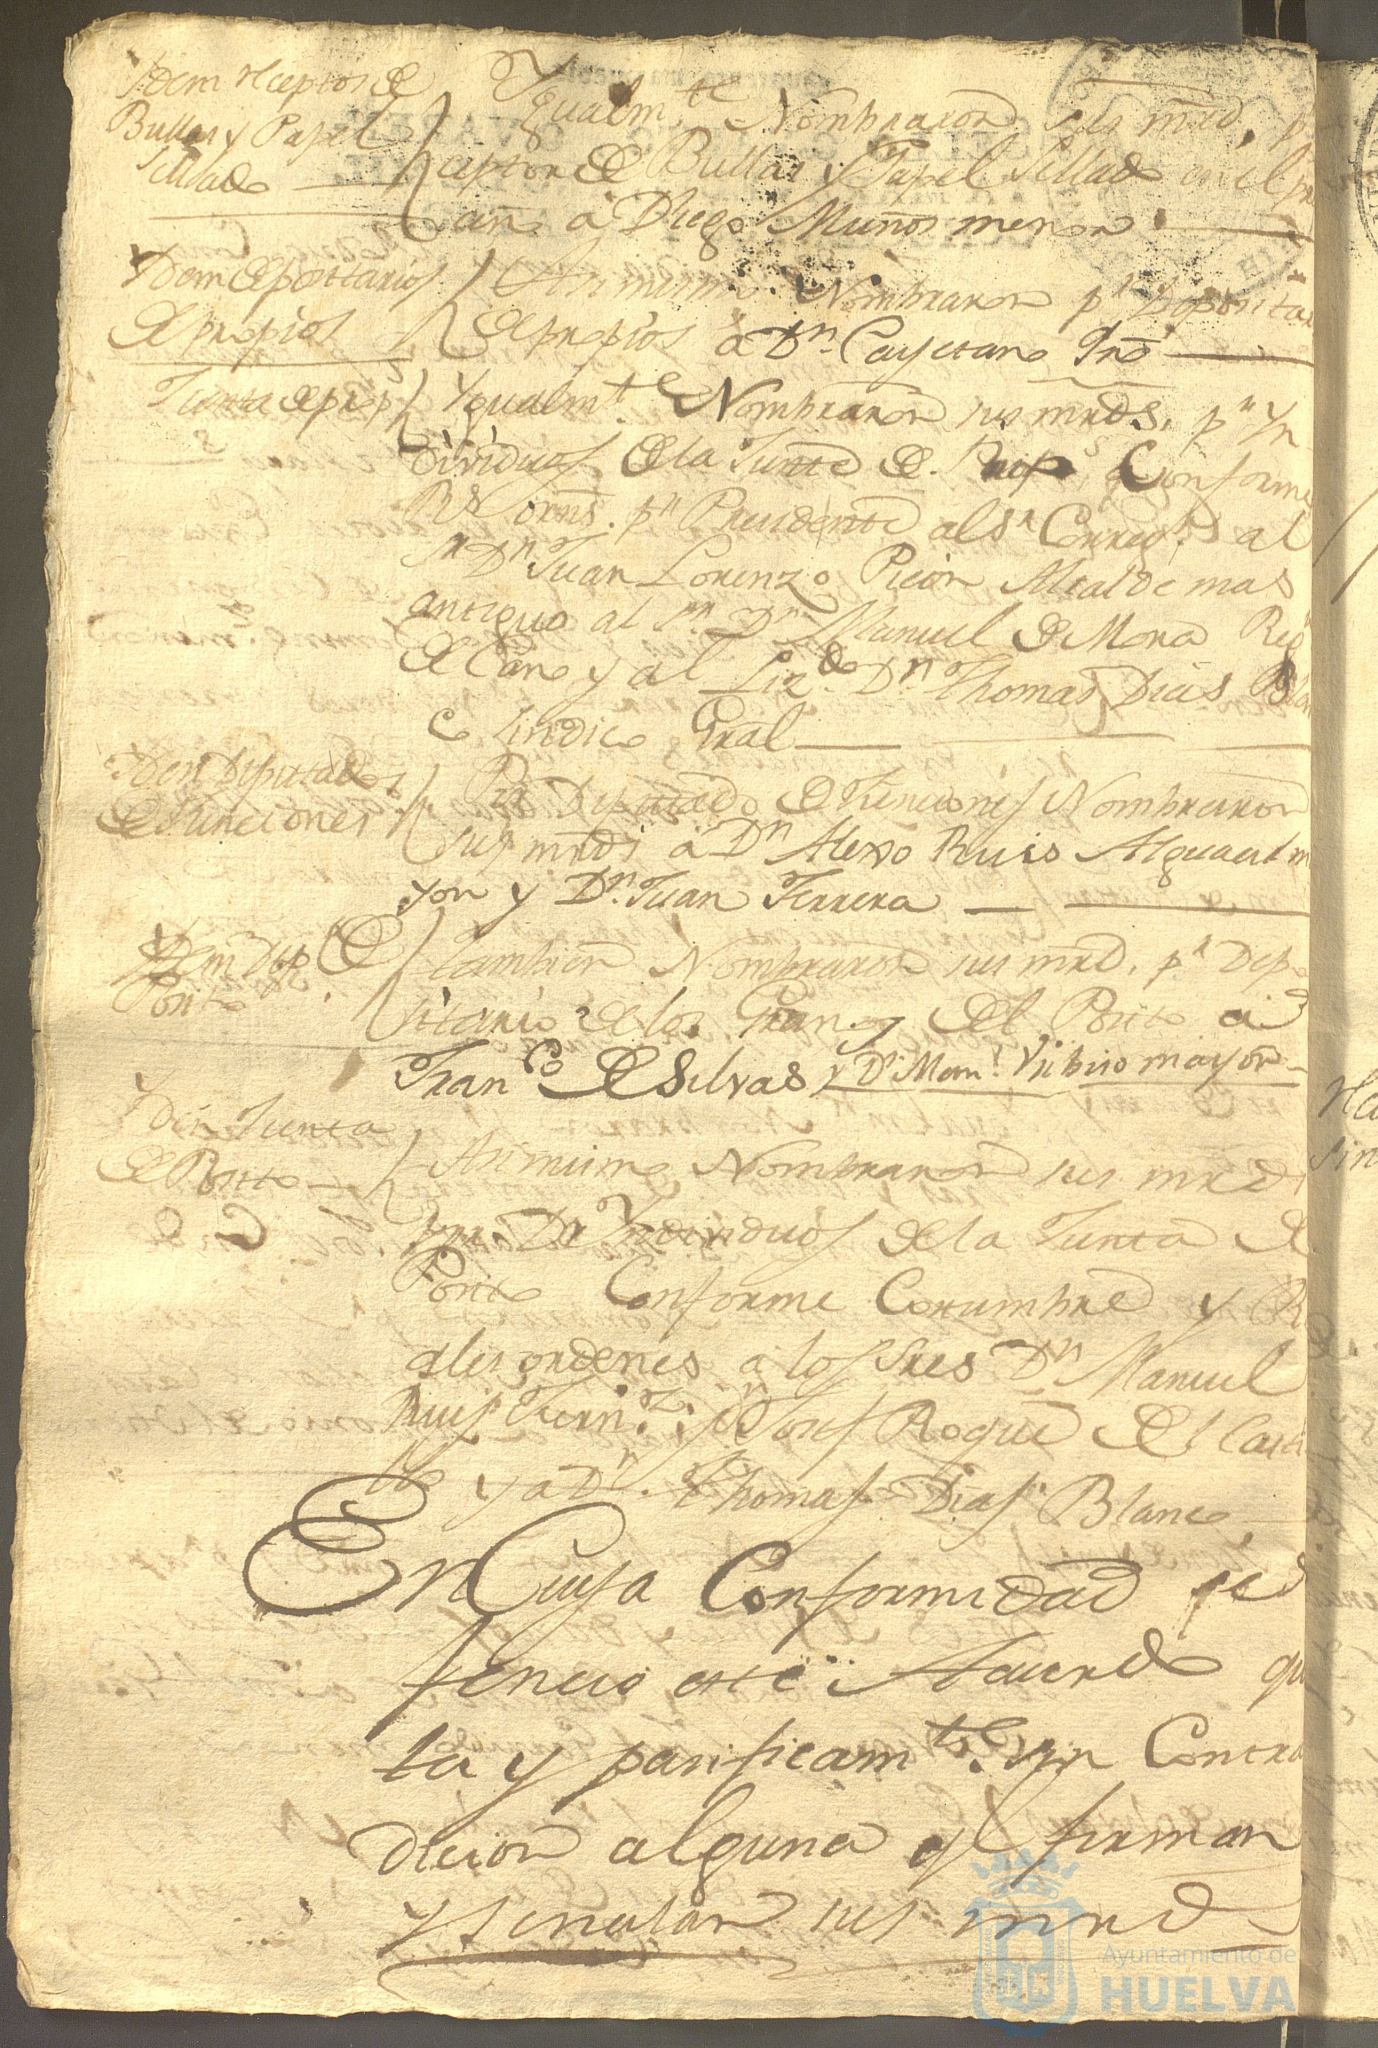 Idem receptor de
Bullas y Papel
Sellado
Ygualmte Nombraron sus mrd, pr
ceptor de Bullas y Papel Sellado en el pre
año a Diego Muños menor
Idem depocitarios
de propios
Asi mismo Nombraron pr Depocitar
de propios a Dn. Cayetano
Junta de prop
Ygualmte Nombraron sus mrds, pr Yn
dividuos de la Junta de Conforme
Rs ordns. pr Precidente al Sr Corregr. al
Sr Dn Juan Lorenzo Picon Alcalde mas
antiguo al Sr Dn Manuel de Mora Regr
Decano y al Lizdo. Dn Thomas Dias Blan
co Sindico Gral
Idem Diputados
de Funciones
Por Diputado de Funciones Nombraron
sus mrds a Dn Alexo Ruis Alguacil m
yor y Dn. Juan Ferrera
Idem Dep. de
Posito
tambien Nombraron sus mrd, pr Depo
sitario de los Granos del Posito a
Franco de Silvas y Dn Manl. mayor
Idem Junta
de Posito
Asi mismo Nombraron sus mrd
por Yndividuos de la Junta de
Posito Conforme Costumbre y R
ales ordenes a los Sres Dn Manuel
Ruis Fernz, Dn Josef Roque del Cas
llo y a Dn. Thomas Dias Blanco
En Cuya Conformidad se
fenecio este Acuerdo qu
ta y pasificamte. sin Contra
dicion alguna y firman
y señalan sus mrd
Ayuntamiento de
HUELVA